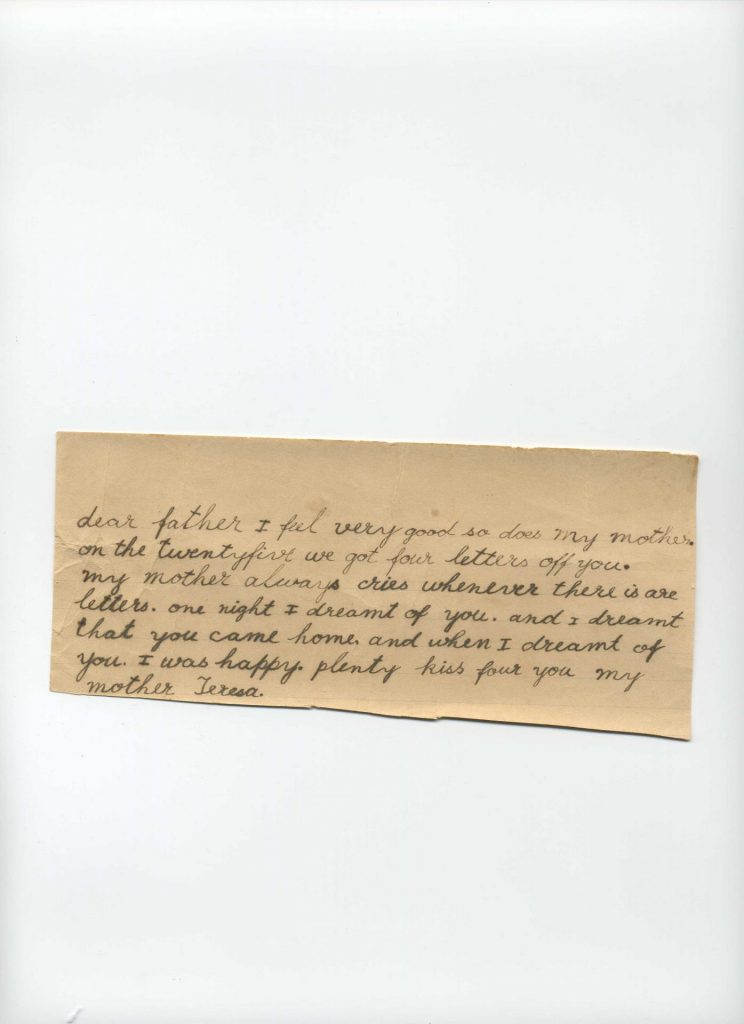 dear father I feel very good so does my mother.
on the twentyfive we got four letters off you.
my mother always cries whenever there is are
letters. one night I dreamt of you. and I dreamt
that you came home. and when I dreamt of
you. I was happy. plenty kiss four you my
mother Teresa.